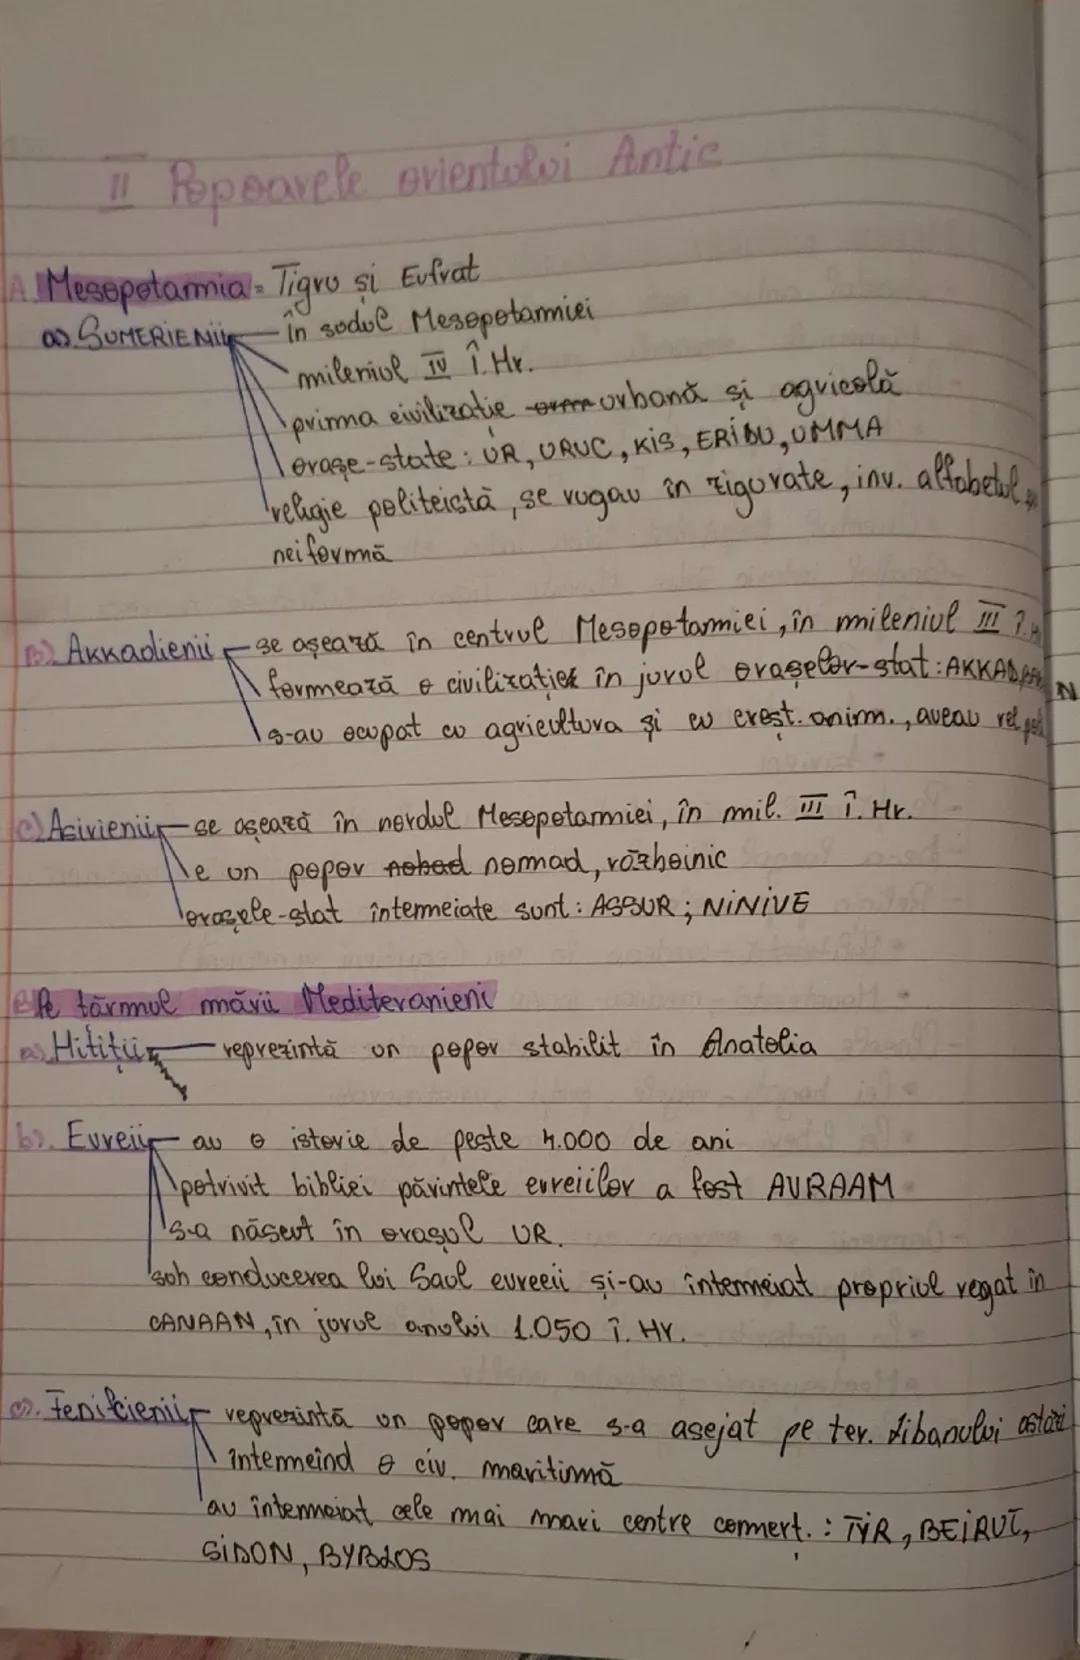 II Popoarele orientului Antic
A. Mesopotamia = Tigru și Eufrat
a). SUMERIENII - în sudul Mesopotamiei
mileniul IV î. Hr.
prima civilizație urbană și agricolă
orașe-state: UR, URUC, KIS, ERIDU, UMMA
religie politeistă, se rugau în zigurate, inv. alfabetul
neiformă
B). Akkadienii - se așează în centrul Mesopotamiei, în mileniul III î. H
formează o civilizație în jurul orașelor-stat: AKKAD
s-au ocupat cu agricultura și cu crest. anim., aveau rel
c) Asirienii - se așează în nordul Mesopotamiei, în mil. III î. Hr.
e un popor nomad, războinic
orașele-stat întemeiate sunt: ASSUR; NINIVE
B Pe tărmul mării Mediteranieni
a) Hitiții - reprezintă un popor stabilit în Anatolia
b). Evreii - au o istorie de peste 4.000 de ani
potrivit bibliei părintele evreiilor a fost AVRAAM
s-a născut în orașul UR.
sub conducerea lui Saul evreeii și-au întemeiat propriul regat în
CANAAN, în jurul anului 1.050 î. Hr.
c). Fenicienii - reprezintă un popor care s-a asejat pe ter. Libanului astăzi
întemeind o civ. maritimă
au întemeiat cele mai mari centre comert.: TYR, BEIRUT,
SIDON, BYBLOS